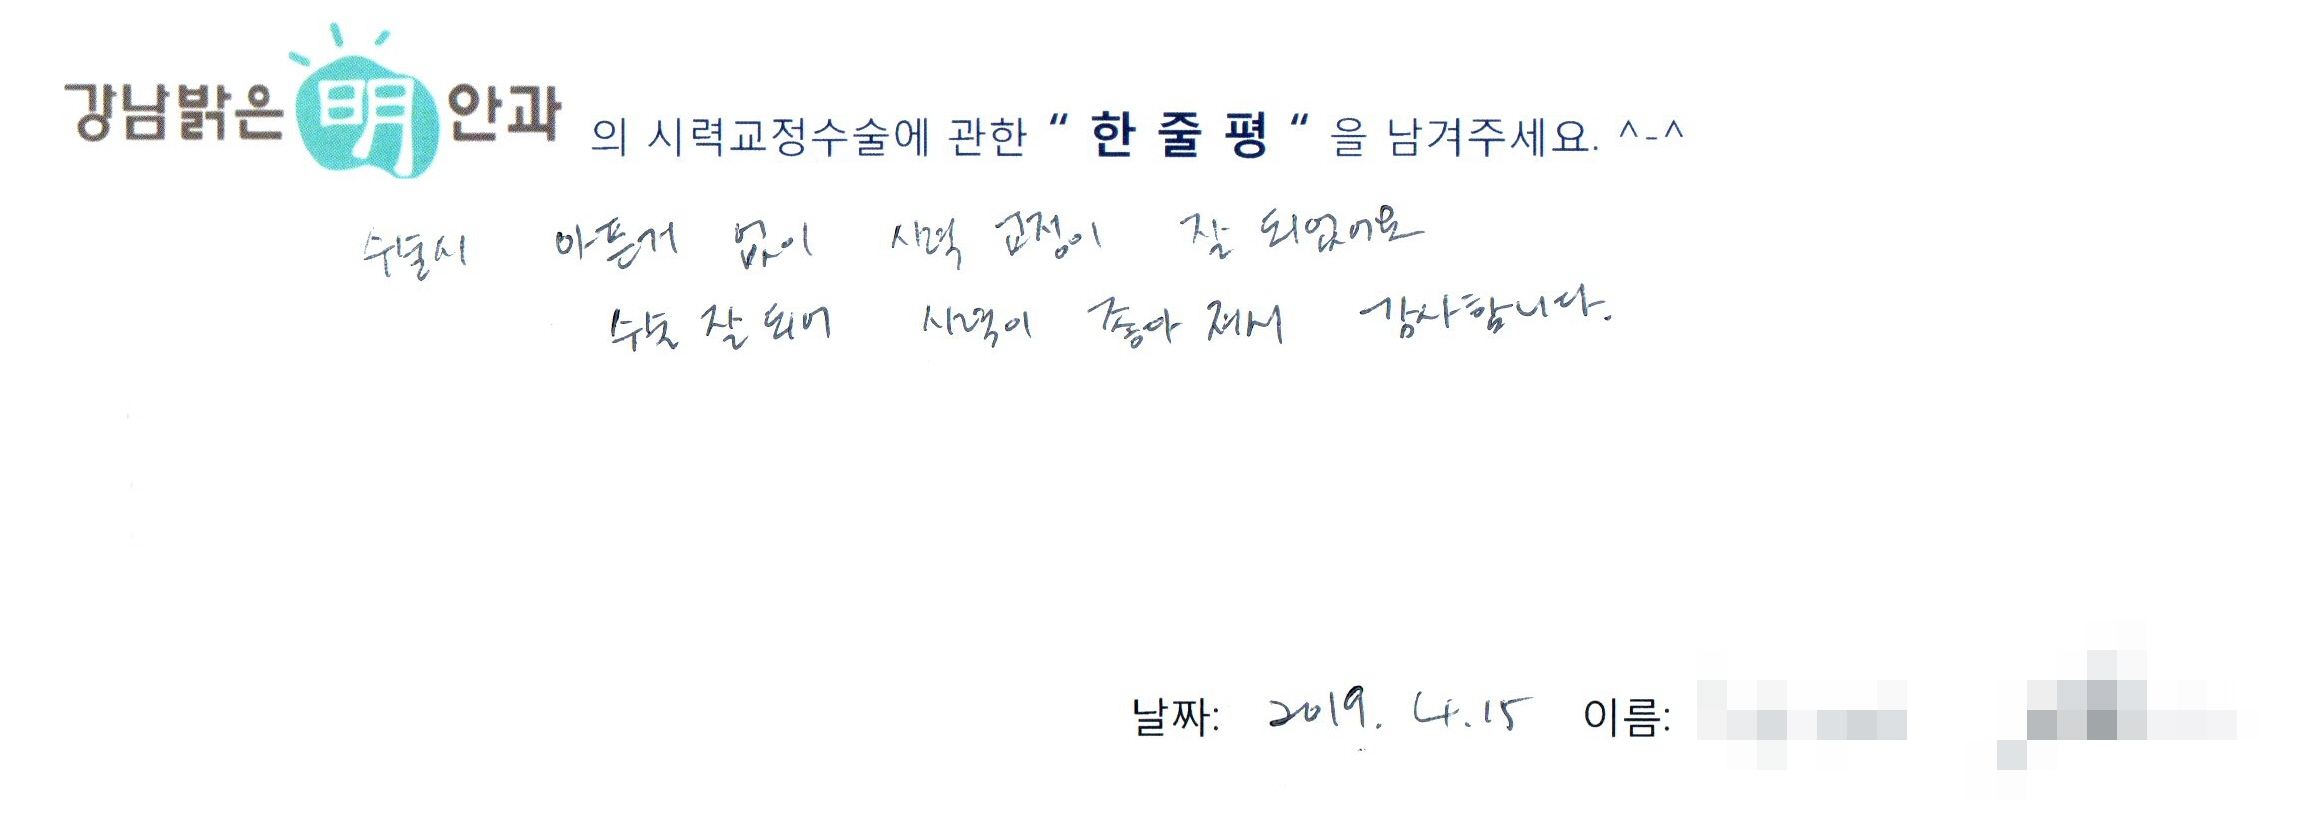 강남밝은 明 안과 의 시력교정수술에 관한 “ 한 줄 평 “ 을 남겨주세요. ^-^
수술시 아픈거 없이 시력 교정이 잘 되었어요
수술 잘 되어 시력이 좋아 져서 감사합니다.
날짜: 2019. 4.15 이름: